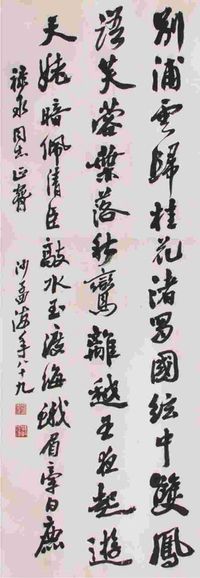 别浦云归桂花渚蜀國絃中雙鳳
語芙蓉葉落秋鸞離越王夜起遊
天姥暗佩清臣敲水玉渡海蛾眉牵白鹿
禄永同志正腕
沙孟海年八十九